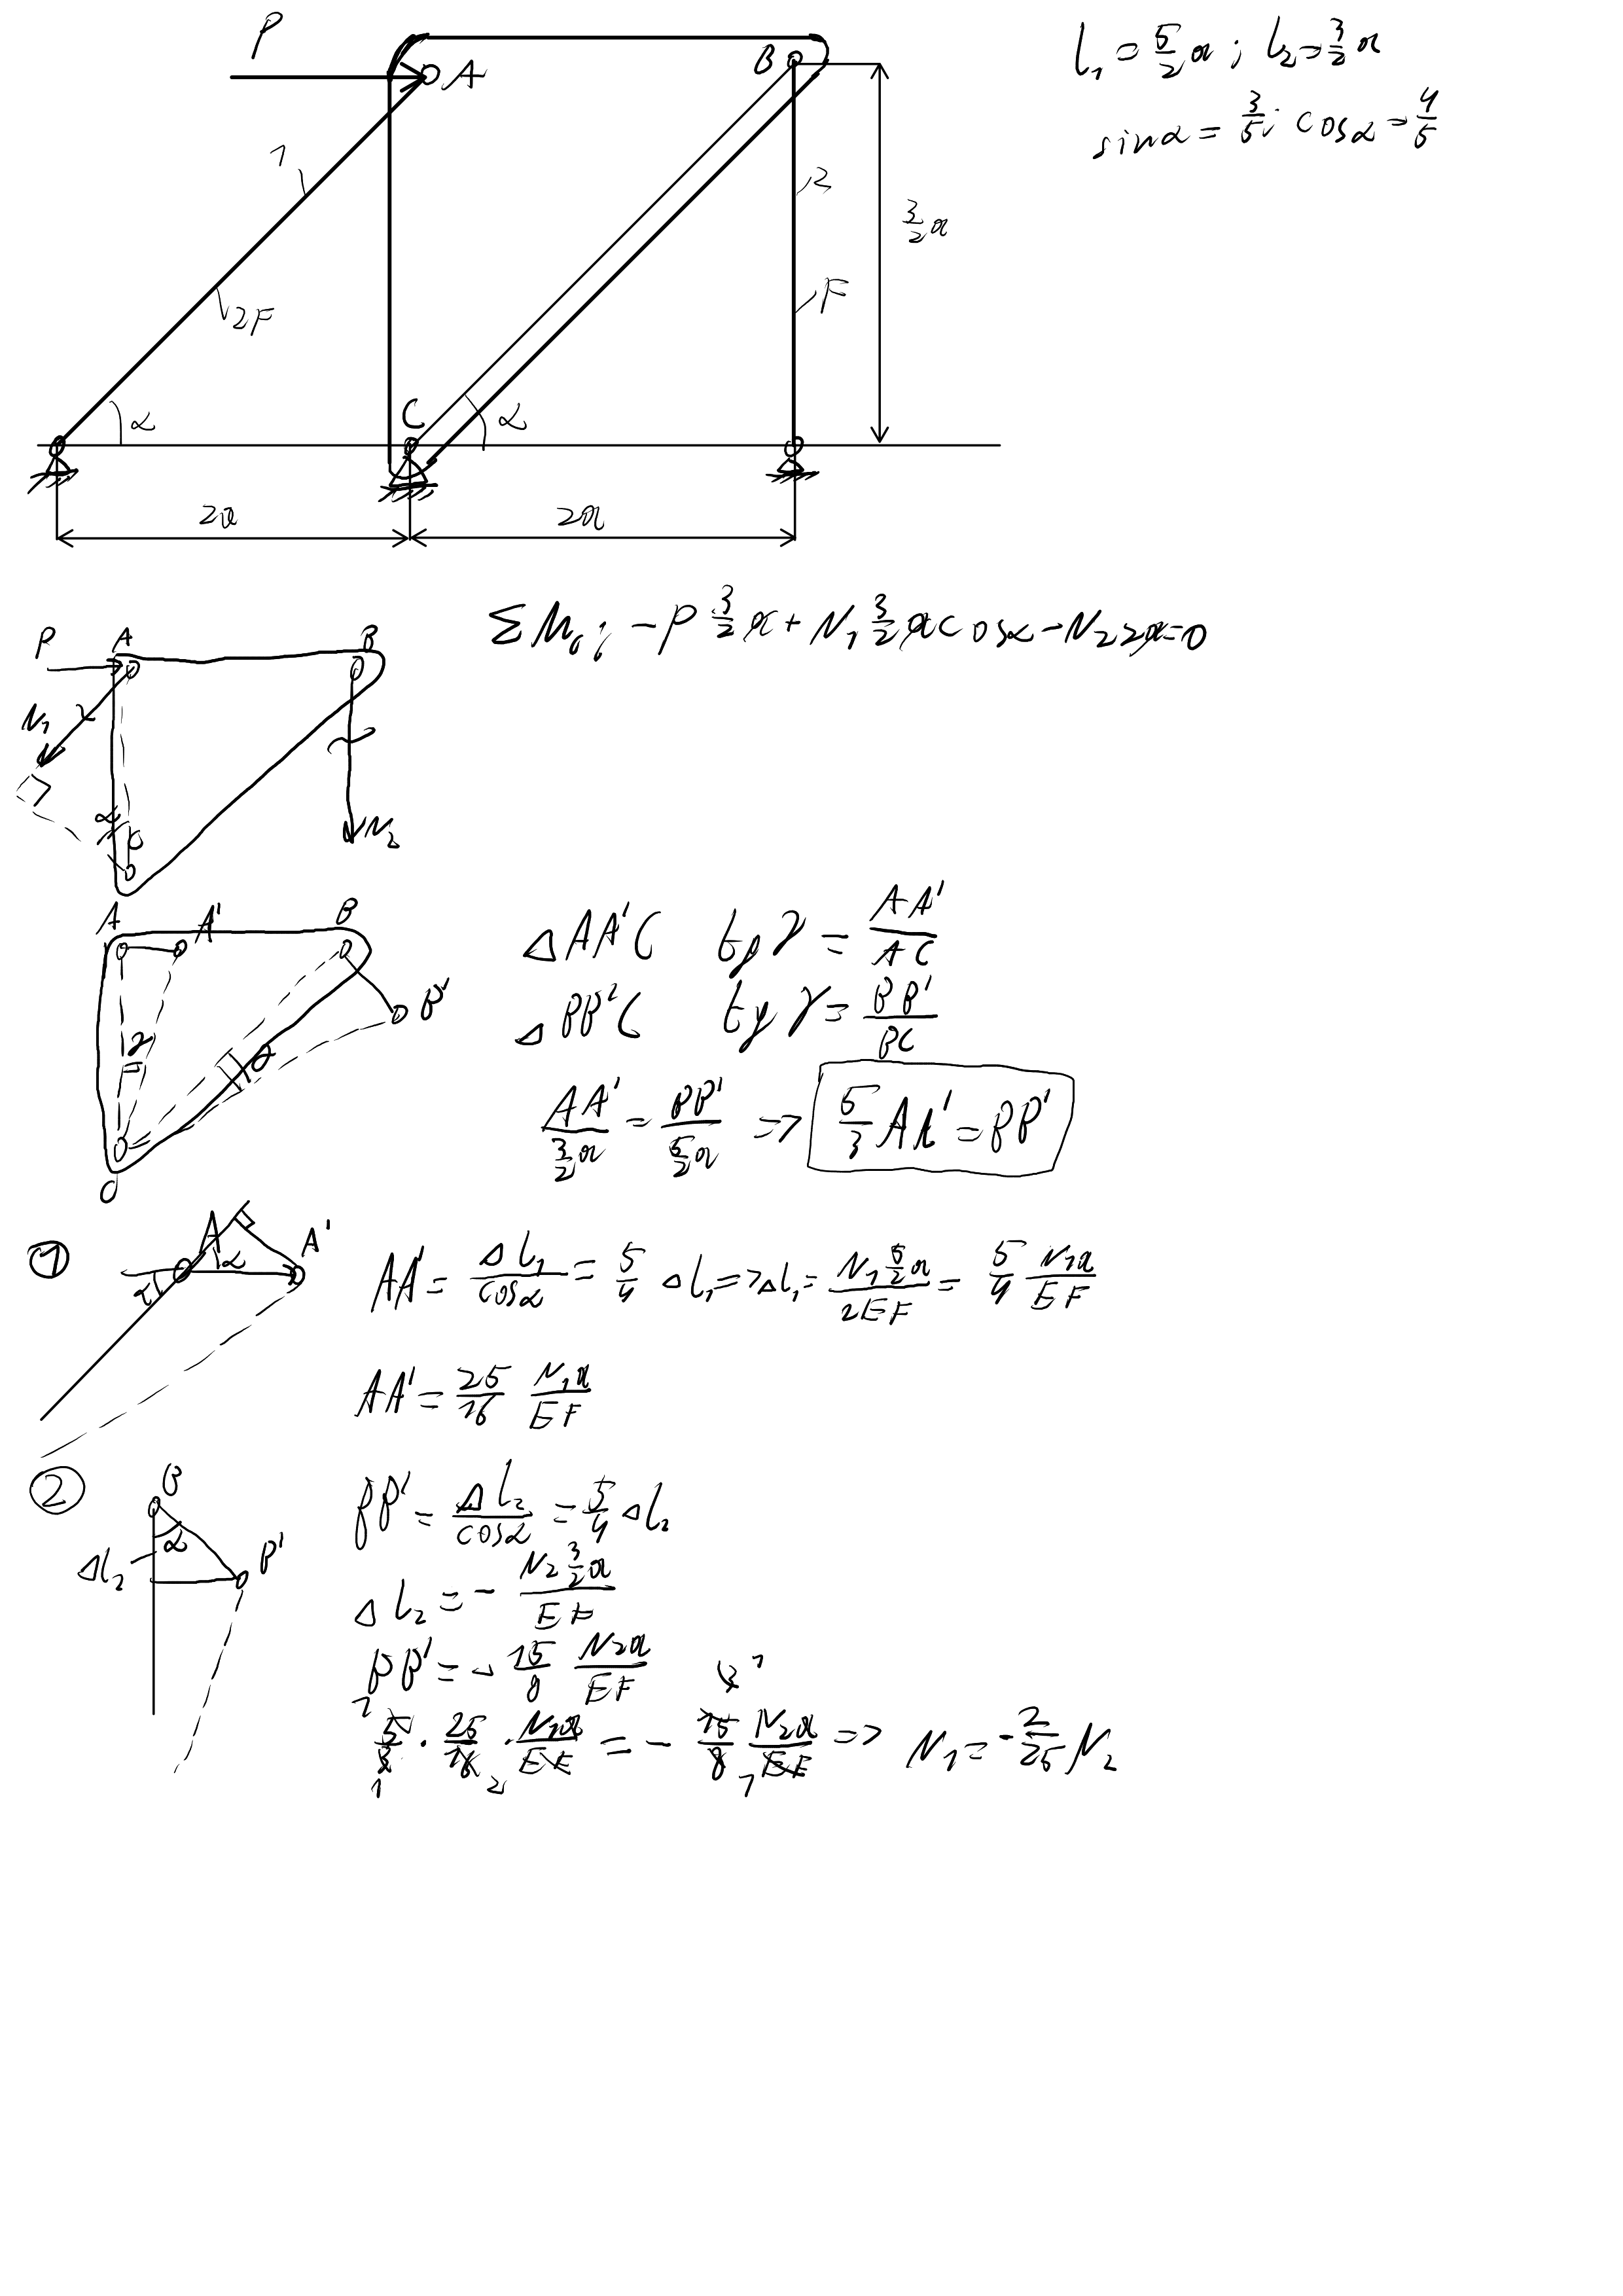 P
A
B
l₁ = 5/2 a ; l₂ = 3/2 a
sinα = 3/5 ; cosα = 4/5
1
2
3/2 a
2F
F
α
C
α
2a
2a
P
A
B
ΣM_C ; -P 3/2 a + N₁ 3/2 a cosα - N₂ 2a = 0
N₁
α
C
N₂
A
A'
B
△AA'C tg γ = AA'/AC
B'
△BB'C tg γ = BB'/BC
γ
γ
AA'/(3/2 a) = BB'/(5/2 a) => 5/3 AA' = BB'
C
1
A
A'
α
α
AA' = Δl₁/cosα = 5/4 Δl₁ => Δl₁ = N₁ 5/2 a/2EF = 5/4 N₁a/EF
AA' = 25/16 N₁a/EF
2
B
α
B'
Δl₂
BB' = Δl₂/cosα = 5/4 Δl₂
Δl₂ = - N₂ 3/2 a/EF
BB' = - 15/8 N₂a/EF
5/3 · 25/16 · N₁a/EF = - 15/8 N₂a/EF => N₁ = - 2/25 N₂